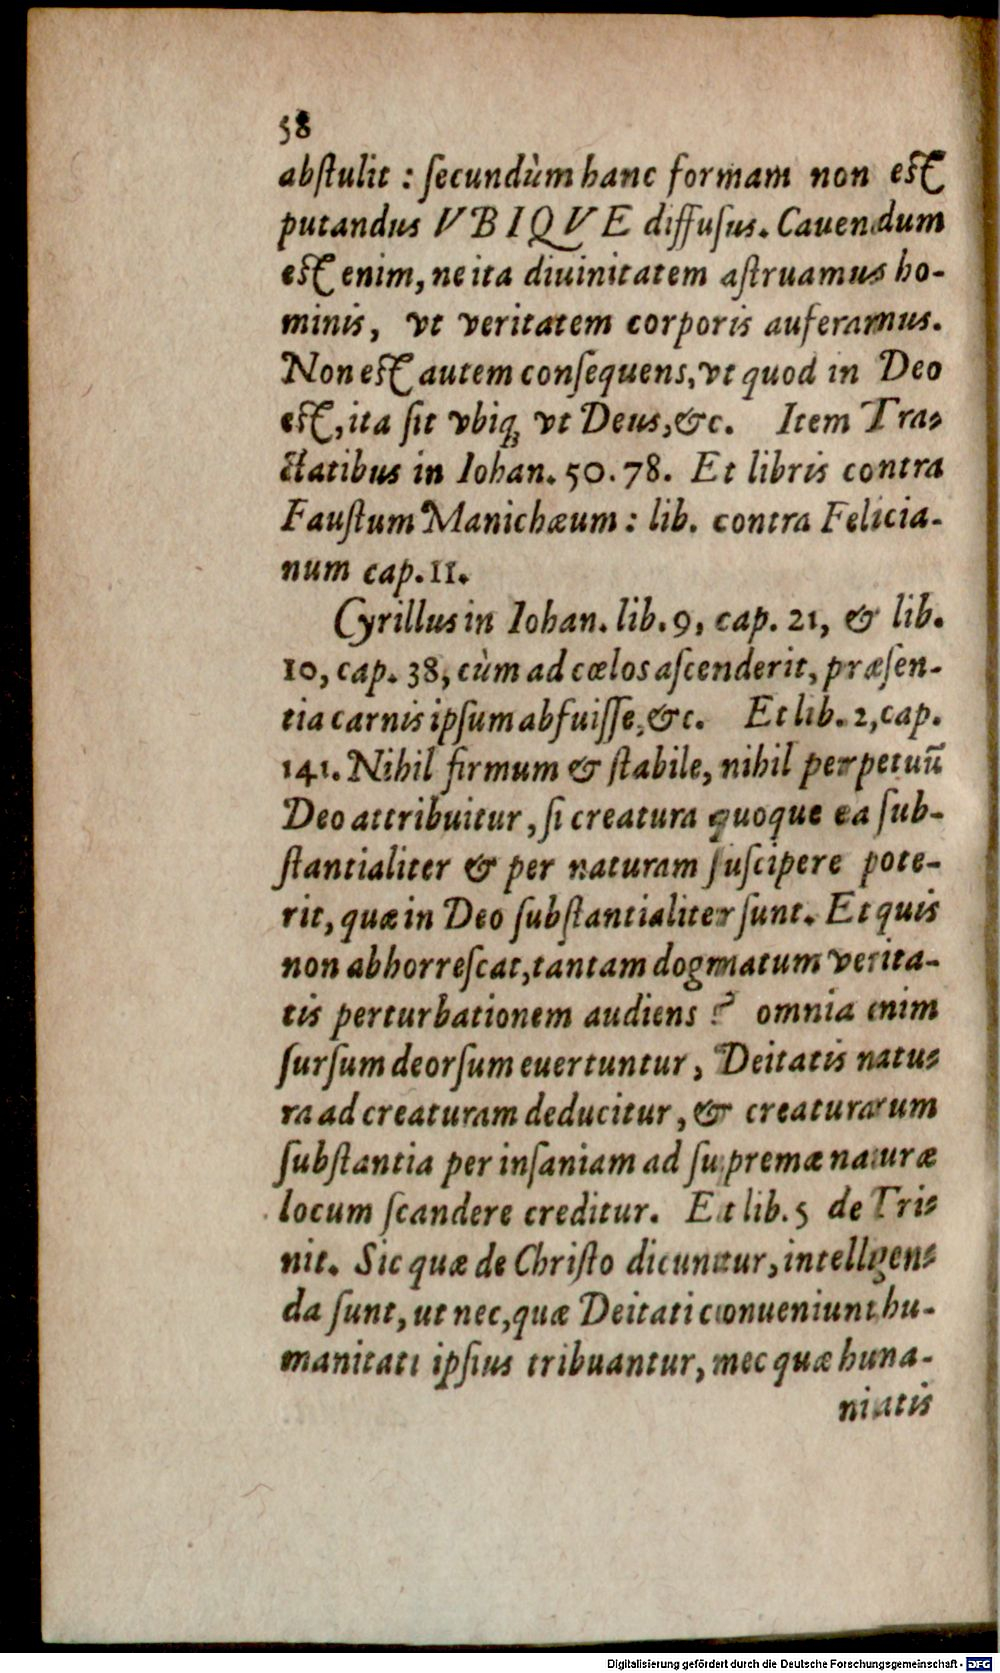 58
abſtulit : ſecundùm hanc formam non eſt
putandus VBIQVE diffuſus. Cauendum
eſt enim, ne ita diuinitatem aſtruamus ho-
minis, vt veritatem corporis auferamus.
Non eſt autem conſequens, vt quod in Deo
eſt, ita ſit vbiq; vt Deus, &c. Item Tra-
ctatibus in Iohan. 50. 78. Et libris contra
Fauſtum Manichæum : lib. contra Felicia-
num cap. 11.
Cyrillus in Iohan. lib. 9, cap. 21, & lib.
10, cap. 38, cùm ad cœlos aſcenderit, præſen-
tia carnis ipſum abfuiſſe, &c. Et lib. 2, cap.
141. Nihil firmum & ſtabile, nihil perpetuũ
Deo attribuitur, ſi creatura quoque ea ſub-
ſtantialiter & per naturam ſuſcipere pote-
rit, quæ in Deo ſubſtantialiter ſunt. Et quis
non abhorreſcat, tantam dogmatum verita-
tis perturbationem audiens ? omnia enim
ſurſum deorſum euertuntur, Deitatis natu-
ra ad creaturam deducitur, & creaturarum
ſubſtantia per inſaniam ad ſupremæ naturæ
locum ſcandere creditur. Et lib. 5 de Tri-
nit. Sic quæ de Chriſto dicuntur, intelligen-
da ſunt, ut nec, quæ Deitati conueniunt, hu-
manitati ipſius tribuantur, nec quæ huma-
nitatis
Digitalisierung gefördert durch die Deutsche Forschungsgemeinschaft - DFG